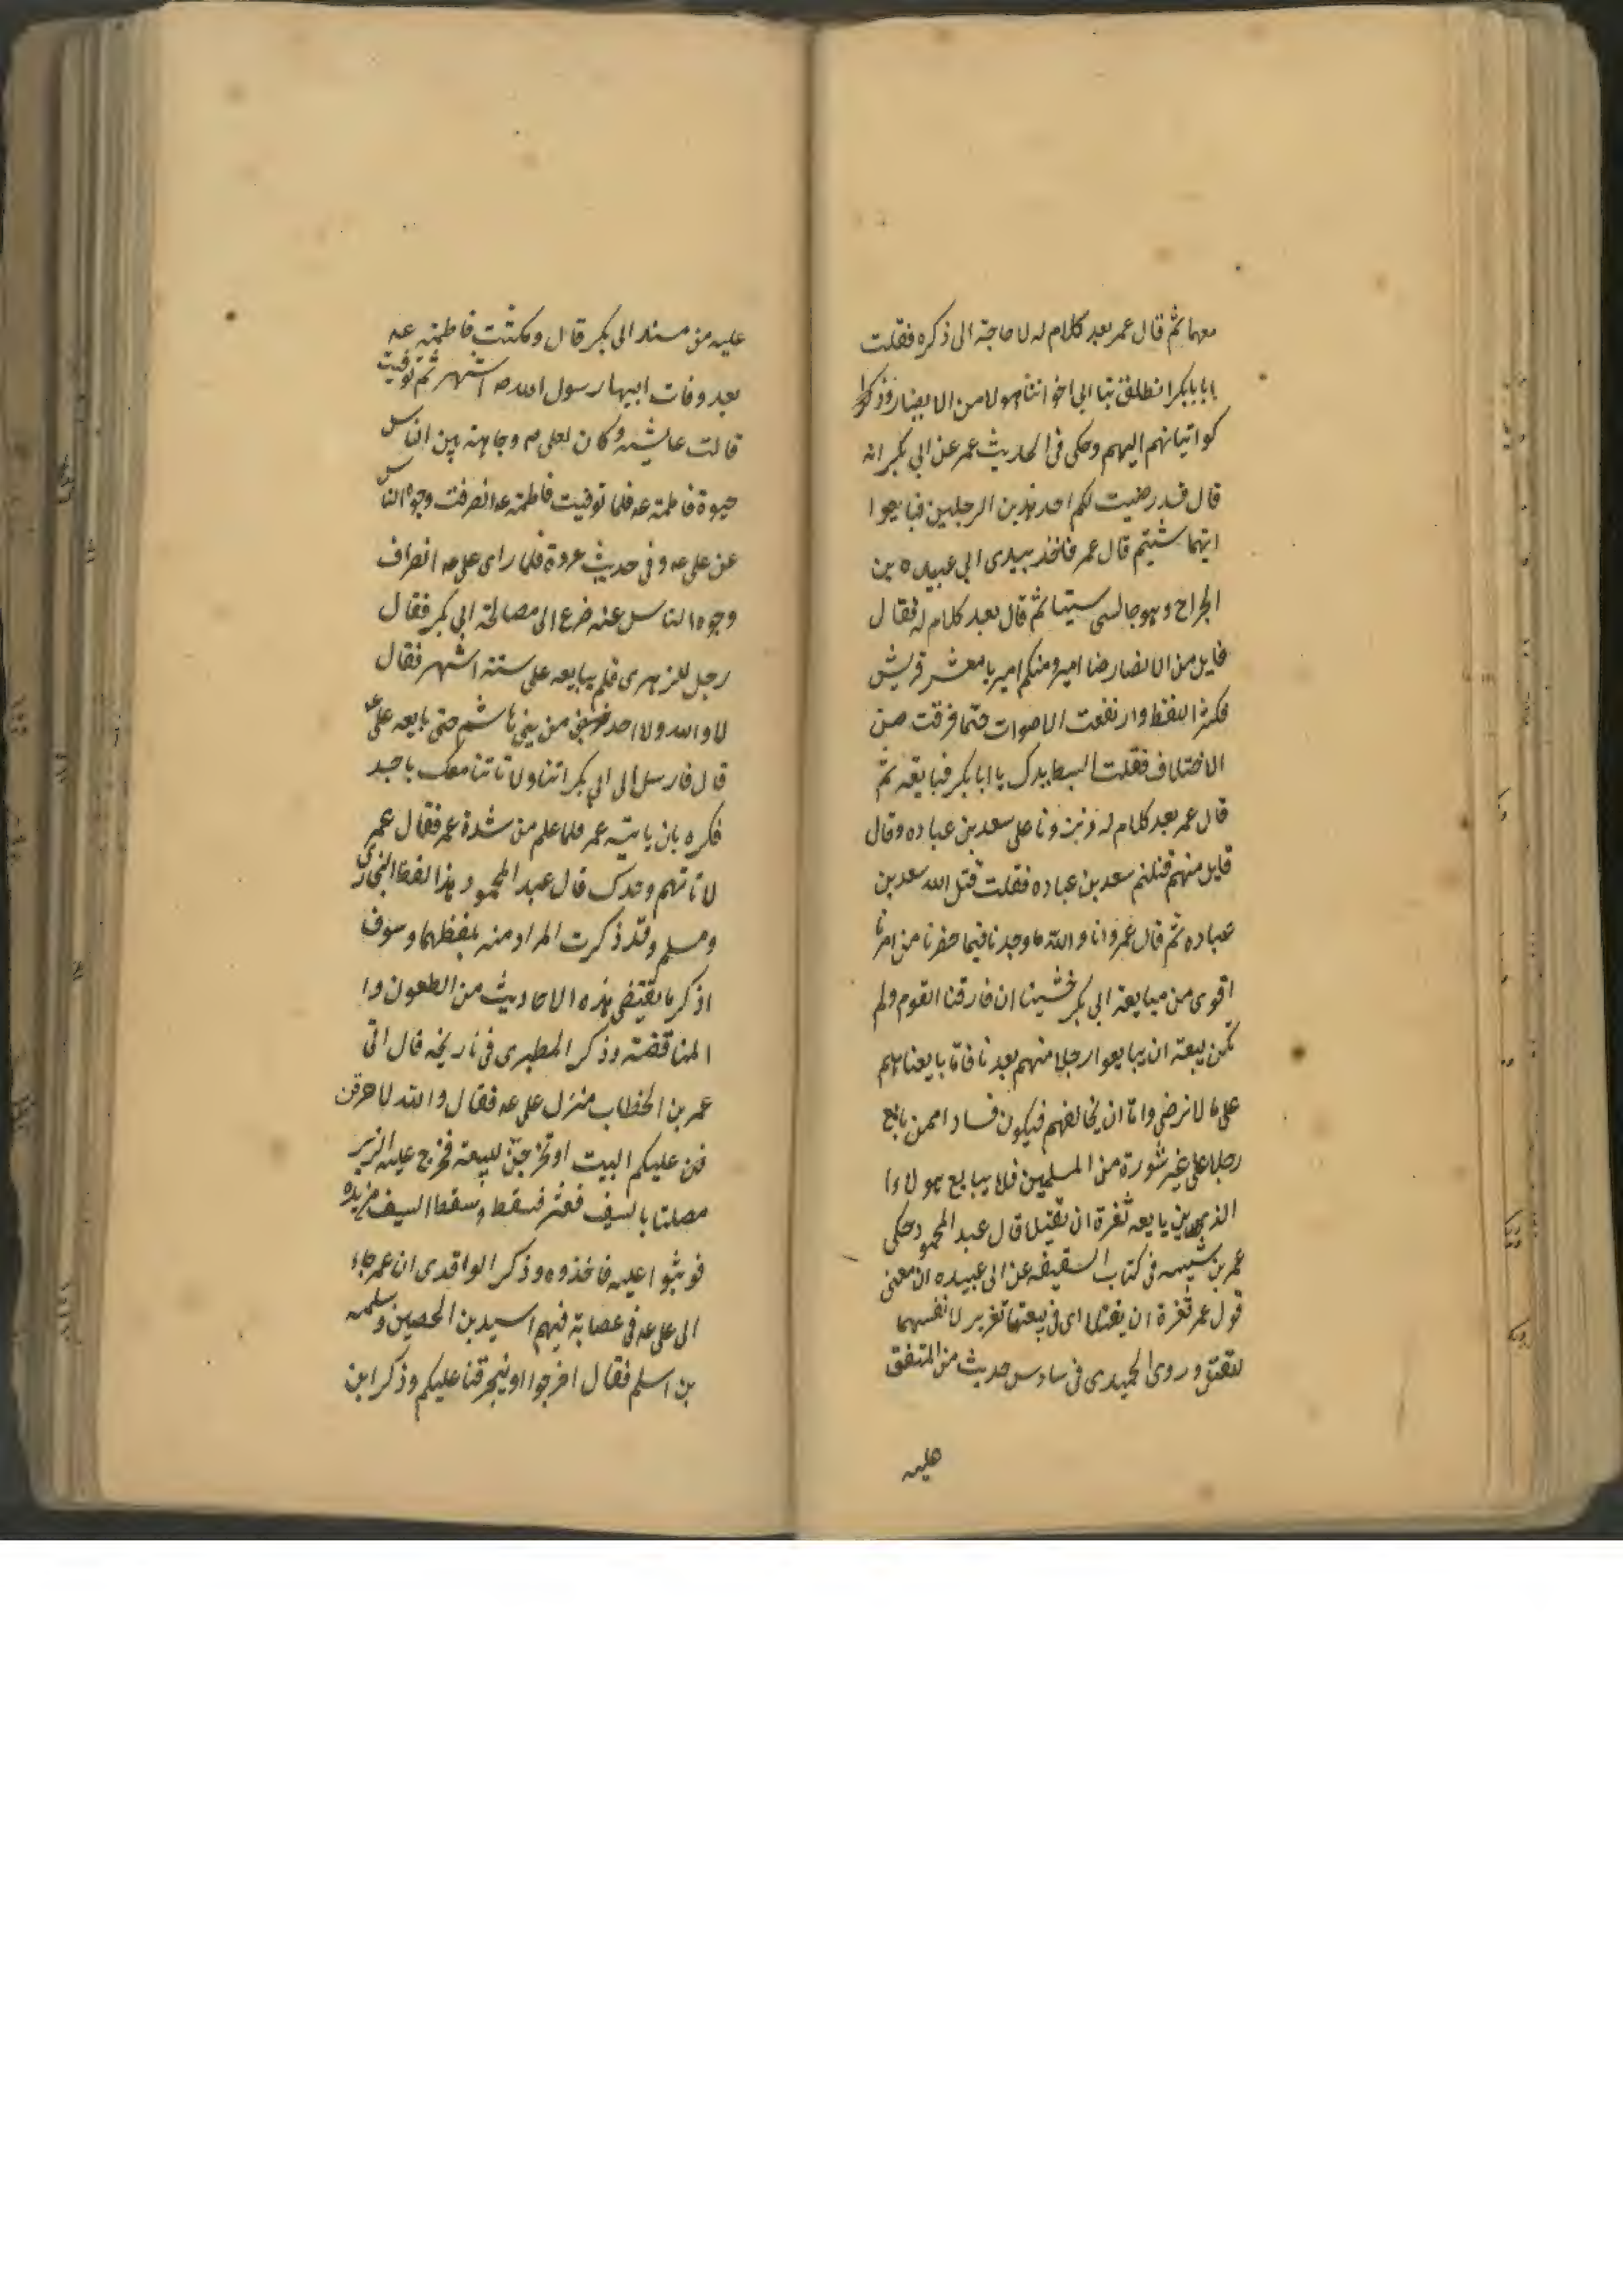 معهما ثم قال عمر بعد كلام له لا حاجة الى ذكره فقلت
يا بابكر انطلق بنا الى اخواننا هولا من الانصار وذكر
كواتيانهم اليهم وحكى فى الحديث عمر عن ابى بكر انه
قال قد رضيت لكم احد هذين الرجلين فبايعوا
ايهما شيتم قال عمر فاخذ بيدى ابى عبيده بن
الجراح وهو جالس بيننا ثم قال بعد كلام له فقال
قايل من الانصار منا امير ومنكم امير يا معشر قريش
فكثر اللغط وارتفعت الاصوات حتما فرقت من
الاختلاف فقلت ابسط يدك يا ابا بكر فبايعه ثم
قال عمر بعد كلام له ونزونا على سعد بن عباده وقال
قايل منهم قتلتم سعد بن عباده فقلت قتل الله سعد بن
عباده ثم قال عمر وانا والله ما وجدنا فيما حضرنا من امرنا
اقوى من مبايعة ابى بكر خشينا ان فارقنا القوم ولم
تكن بيعة ان يبايعوا رجلا منهم بعدنا فاما بايعناهم
على ما لا نرضى واما ان يخالفهم فيكون فسادا فمن بايع
رجلا على غير شورة من المسلمين فلا يبايع هولاء
الذى بايعه تغرة ان يقتلا قال عبد المحمود وحكى
عمر بن شيبه فى كتاب السقيفه عن ابى عبيده ان معنى
قول عمر تغرة ان يقتلا اى فى بيعتهما تغرير لانفسهما
للقتل وروى الحميدى فى سادس حديث من المتفق
عليه
عليه من مسند ابى بكر قال ومكثت فاطمه عه
بعد وفات ابيها رسول الله ص اشهر ثم توفيت
قالت عايشه وكان لعلى م وجاهة بين الناس
حيوة فاطمة عه فلما توفيت فاطمة عه انصرفت وجوه الناس
عن على عه وفى حديث عروة فلما راى على عه انصراف
وجوه الناس عنه ضرع الى مصالحة ابى بكر فقال
رجل للزهرى فلم يبايعه على ستة اشهر فقال
لا والله ولا احد من بنى هاشم حتى بايعه على عه
قال فارسل الى ابى بكر ائتنا ولا تاتنا معك باحد
فكره بان ياتيه عمر لما علم من شدة عمر فقال عمر
لا تاتهم وحدك قال عبد المحمود هذا لفظ البخارى
ومسلم وقد ذكرت المراد منه بلفظهما وسوف
اذكر ما يقتضى هذه الاحاديث من الطعون وا
المناقضة وذكر الطبرى فى تاريخه قال اتى
عمر بن الخطاب منزل على عه فقال والله لاحرقن
عليكم البيت او تخرجن للبيعه فخرج عليه الزبير
مصلتا بالسيف فعثر فسقط وسقط السيف من يده
فوثبوا عليه فاخذوه وذكر الواقدى ان عمر جاء
الى على عه فى عصابة فيهم اسيد بن الحصين وسلمه
بن اسلم فقال اخرجوا او لنحرقنا عليكم وذكر ابن